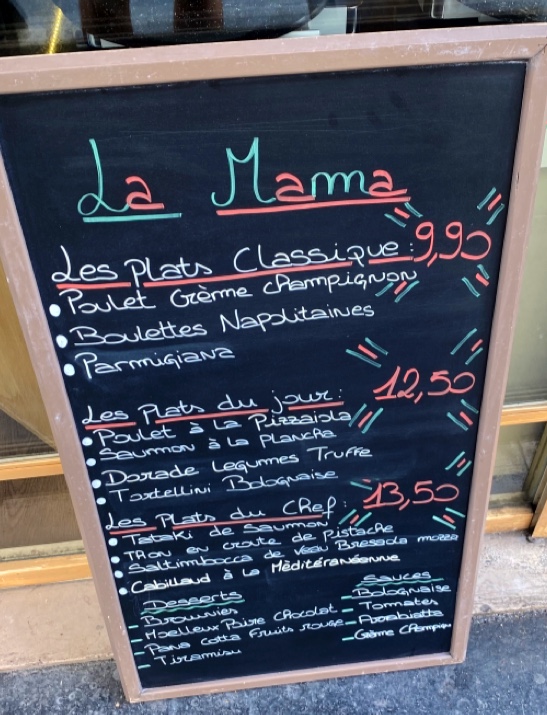 La Mama
Les Plats Classique : 9,90
• Poulet Crème champignon
• Boulettes Napolitaines
• Parmigiana
Les Plats du jour : 12,50
• Poulet à La Pizzaiola
• Saumon à la Plancha
• Dorade Legumes Truffe
• Tortellini Bolognaise
Les Plats du Chef : 13,50
• Tataki de Saumon
• Thon en croute de Pistache
• Saltimbocca de Veau Bresaola mozza
• Cabillaud à La Mèditéranéenne
Desserts
- Brownies
- Moelleux Poire Chocolat
- Pana cotta Fruits rouge
- Tiramisu
Sauces
- Bolognaise
- Tomates
- Arrabiatta
- Crème Champign